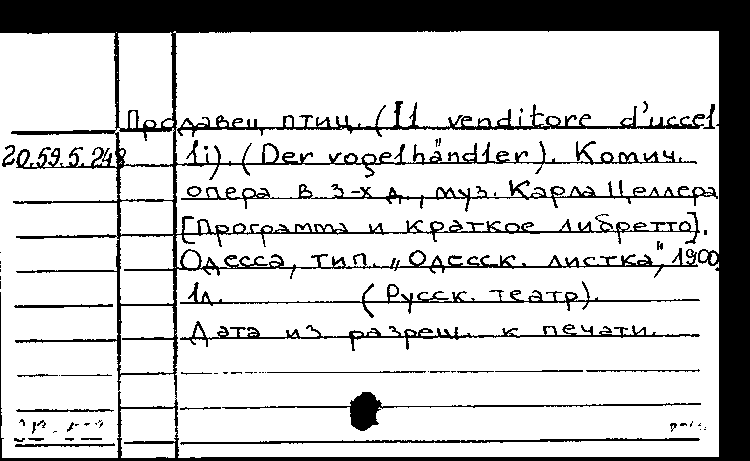 Продавец птиц. (Il venditore d'uccel
20.59.5.248 li). (Der vogelhändler). Комич.
опера в 3-х д., муз. Карла Целлера
[Программа и краткое либретто].
Одесса, тип. „Одесск. листка", 1900
1л. (Русск. театр).
Дата из разреш. к печати.